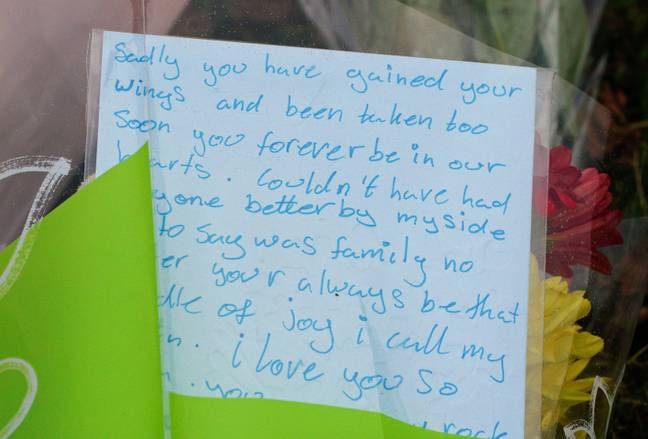 Sadly you have gained your
wings and been taken too
Soon you forever be in our
hearts. Couldn't have had
yone better by my side
to say was family no
er your always be that
dle of joy i call my
n. i love you so
n. you
rock